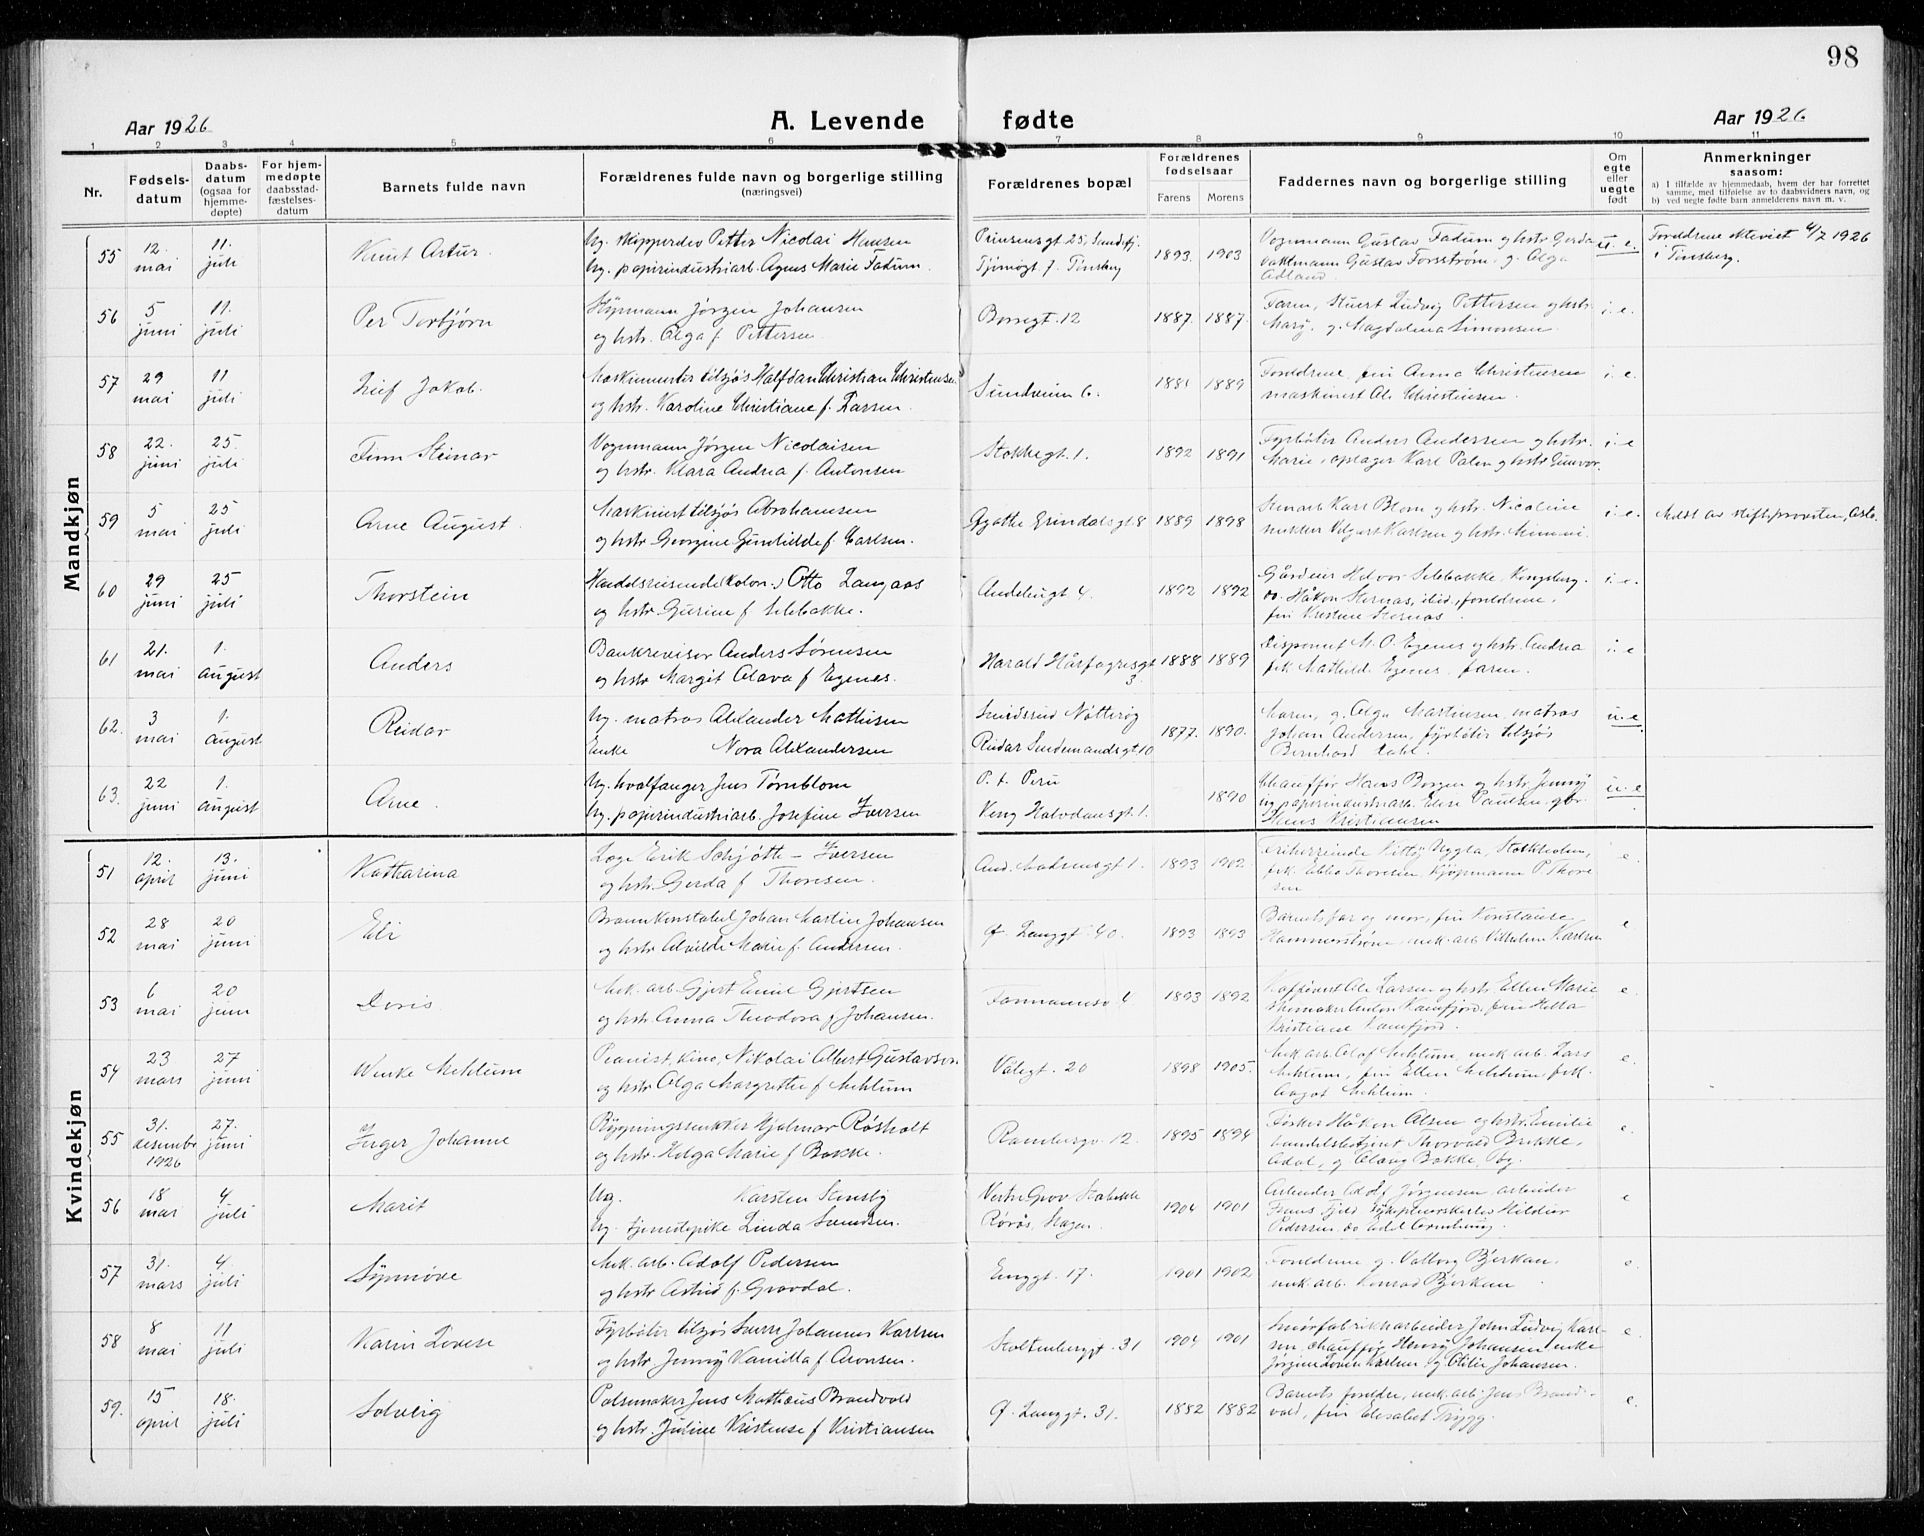 98
Aar 1926
A. Levende fødte
Aar 1926.
1 2 3 4 5 6 7 8 9 10 11
Nr.
Fødselsdatum
Daabsdatum (ogsaa for hjemmedøpte)
For hjemmedøpte daabsstadfæstelsesdatum
Barnets fulde navn
Forældrenes fulde navn og borgerlige stilling (næringsvei)
Forældrenes bopæl
Forældrenes fødselsaar
Farens Morens
Faddernes navn og borgerlige stilling
Om egte eller uegte født
Anmerkninger saasom:
a) I tilfælde av hjemmedaab, hvem der har forrettet samme, med tilføielse av to daabsvidners navn, og
b) ved uegte fødte barn anmelderens navn m. v.
Mandkjøn
55 12. mai 11. juli Knut Artur. Ug. skipperelev Petter Nicolai Hansen Prinsensgt 25, Sandefj. 1893. 1903 Vognmann Gustav Fadum og hstr Gerda u. e. Foreldrene ekteviet 4/7 1926
Ug. papirindustriarb. Agnes Marie Fadum. Tjømøgt 7. Tønsberg vaktmann Gustav Forsstrøm, g. Olga Adland i Tønsberg.
56 5 juni 11. juli Per Torbjørn Jørgen Johansen Borregt. 12 1887. 1887. Faren, Stuert Ludvig Pettersen og hstr. i. e.
og hstr. Olga f. Pettersen Mary, g. Magdalena Simonsen.
57 29 mai 11 juli Leif Jakob. Maskinmester tilsjøs Halfdan Christian Christensen Sundveien 6. 1881 1889 Foreldrene, frin Anna Christensen i. e.
og hstr. Karoline Christiane f. Larsen. maskinist Ole Christensen.
58 22. juni 25. juli Finn Steinar Vognmann Jørgen Nicolaisen Stokkegt. 1. 1892 1891 Fyrbøter Anders Andersen og hstr. i. e
og hstr. Klara Andrea f. Antonsen Marie, oplager Karl Palen og hstr Gunvor.
59 5 mai 25 juli Arne August. Maskinist tilsjøs Abrahamsen Agathe Grindalsgt 8 1889 1898 Karl Blom og hstr. Nicoline i. e. Meldt av stiftsprovsten, Oslo.
og hstr. Georgine Gunhilde f. Carlsen. snekker Valgert Karlsen og hstr. Mimmi.
60 29 juni 25 juli Thorstein Handelsreisende (kolon.) Otto Langaas Andebugt 4. 1892 1892 Gårdeier Halvor Selebakke, Kongsberg. i. e.
og hstr. Gurine f. Selebakke. do. Håkon Sternas, ibid, foreldrene, frin Kristine Stenas.
61 21. mai 1. august Anders Bankrevisor Anders Sørensen Harald Hårfagresgt 3. 1888 1889 Disponent M. O. Egenes og hstr. Andrea i. e
og hstr Margit Olava f Egenes. frk Mathilde Egenes, faren.
62. 3 mai 1. august Reidar Ug. matros Alexander Mathisen Smidsrød Nøtterøy 1877. 1890. Maren, g. Olga Martinsen, matros u. e
Enke Nora Alexandersen Reidar Sendemandsgt. 10 Johan Andersen, fyrbøter tilsjøs Bernhard
63. 22 juni 1. august Arne. Ug. hvalfanger Jens Tørnblom P. t. Peru 1890 Chauffør Hans Borgen og hstr Jenny u. e
Ug. papirindustriarb. Josefine Iversen Kong Halvdansgt. 1. Ug papirindustriarb. Elise Paulsen, gbr. Hans Kristiansen
Kvindekjøn
51 12. april 13. juni Katharina Læge Erik Schjøtte - Iversen And. Madsensgt 1. 1893 1902. Kitty Nygla, Stockholm, e.
og hstr. Gerda f Thoresen. frk. Ebba Thoresen, Kjøpmann P. Thoresen
52 28 mai 20 juni Eli Brannkonstabel Johan Martin Johansen Ø. Langgt 40. 1893 1893 Barnets far og mor, frin Konstanse e
og hstr. Alvilde Marie f. Andersen. Hammerstrøm, mek. arb. Vilhelm Karlsen
53 6 mai 20 juni Doris Mek. arb. Gjert Emil Gjertsen 1893 1892 Ole Larsen og hstr Ellen Marie e.
og hstr. Anna Theodora f Johansen. Skomaker Anton Kamfjord, frin Helka Kristiane Kamfjord.
54 23 mars 27 juni Wenke Mehlum Pianist, kino, Nikolai Albert Gustavson Valøgt. 20 1898 1905. Mek. arb. Olaf Mehlum, mek. arb. Lars e.
og hstr. Olga Margrethe f Mehlum Mehlum, frin Ellen Mehlum, frk. Aagot Mehlum.
55 31. desembr 1926 27. juni Inger Johanne Bygningssnekker Hjalmar Røsholt Rambergv. 12. 1895 1894 Fisker Håkon Olsen og hstr. Emilie e.
og hstr. Helga Marie f Bakke. handelsbetjent Thorvald Bakke, Adal, g Olaug Bakke,
56 18 mar 4 juli Marit Ug. Karsten Stensby Vestre Grav Stabekk 1904 1901 Adolf Jørgensen, arbeider e
Ug. tjenestepike Linda Svendsen. Røros, Hagen. Hildur Pedersen
57 31. mars 4. juli Synnøve Mek. arb. Adolf Pedersen Enggt. 17. 1901 1902 Foreldrene g. Valborg Bjerkan, e.
og hstr Astrid f. Gravdal. mek. arb. Konrad Bjerkan.
58 8 mai 11 juli Karin Lovise Fyrbøter tilsjøs Sverre Johannes Karlsen Stoltenberggt. 31 1904 1901 Smørfabrikkarbeider John Ludvig Karlsen, e.
og hstr. Jenny Kamilla f. Aronsen. chauffør Henry Johansen, enke Jørgine Lovise Karlsen, g. Otilie Johansen.
59. 15 april 18. juli Solveig Pølsemaker Jens Mathæus Brandvold Ø. Langgt. 31. 1882 1882 Barnets foreldre, mek. arb. Jens Brandvold, e.
og hstr. Juline Kristense f Kristiansen frin Elisabet Trygg.